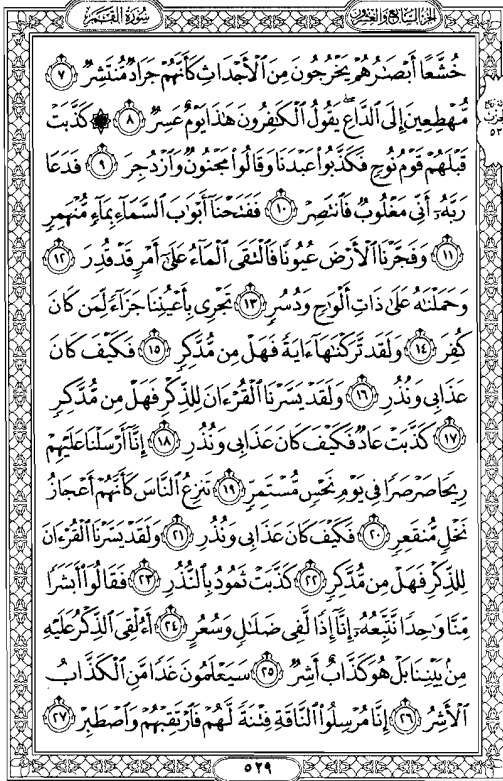 سُورَةُ القَمَرِ
الجزء السابع والعشرون
خُشَّعًا أَبْصَٰرُهُمْ يَخْرُجُونَ مِنَ ٱلْأَجْدَاثِ كَأَنَّهُمْ جَرَادٌ مُّنتَشِرٌ ٧
مُّهْطِعِينَ إِلَى ٱلدَّاعِ ۖ يَقُولُ ٱلْكَٰفِرُونَ هَٰذَا يَوْمٌ عَسِرٌ ٨ ۞ كَذَّبَتْ
قَبْلَهُمْ قَوْمُ نُوحٍ فَكَذَّبُوا۟ عَبْدَنَا وَقَالُوا۟ مَجْنُونٌ وَٱزْدُجِرَ ٩ فَدَعَا
رَبَّهُۥٓ أَنِّى مَغْلُوبٌ فَٱنتَصِرْ ١٠ فَفَتَحْنَآ أَبْوَٰبَ ٱلسَّمَآءِ بِمَآءٍ مُّنْهَمِرٍ
١١ وَفَجَّرْنَا ٱلْأَرْضَ عُيُونًا فَٱلْتَقَى ٱلْمَآءُ عَلَىٰٓ أَمْرٍ قَدْ قُدِرَ ١٢
وَحَمَلْنَٰهُ عَلَىٰ ذَاتِ أَلْوَٰحٍ وَدُسُرٍ ١٣ تَجْرِى بِأَعْيُنِنَا جَزَآءً لِّمَن كَانَ
كُفِرَ ١٤ وَلَقَد تَّرَكْنَٰهَآ ءَايَةً فَهَلْ مِن مُّدَّكِرٍ ١٥ فَكَيْفَ كَانَ
عَذَابِى وَنُذُرِ ١٦ وَلَقَدْ يَسَّرْنَا ٱلْقُرْءَانَ لِلذِّكْرِ فَهَلْ مِن مُّدَّكِرٍ
١٧ كَذَّبَتْ عَادٌ فَكَيْفَ كَانَ عَذَابِى وَنُذُرِ ١٨ إِنَّآ أَرْسَلْنَا عَلَيْهِمْ
رِيحًا صَرْصَرًا فِى يَوْمِ نَحْسٍ مُّسْتَمِرٍّ ١٩ تَنزِعُ ٱلنَّاسَ كَأَنَّهُمْ أَعْجَازُ
نَخْلٍ مُّنقَعِرٍ ٢٠ فَكَيْفَ كَانَ عَذَابِى وَنُذُرِ ٢١ وَلَقَدْ يَسَّرْنَا ٱلْقُرْءَانَ
لِلذِّكْرِ فَهَلْ مِن مُّدَّكِرٍ ٢٢ كَذَّبَتْ ثَمُودُ بِٱلنُّذُرِ ٢٣ فَقَالُوٓا۟ أَبَشَرًا
مِّنَّا وَٰحِدًا نَّتَّبِعُهُۥٓ إِنَّآ إِذًا لَّفِى ضَلَٰلٍ وَسُعُرٍ ٢٤ أَءُلْقِىَ ٱلذِّكْرُ عَلَيْهِ
مِنۢ بَيْنِنَا بَلْ هُوَ كَذَّابٌ أَشِرٌ ٢٥ سَيَعْلَمُونَ غَدًا مَّنِ ٱلْكَذَّابُ
ٱلْأَشِرُ ٢٦ إِنَّا مُرْسِلُوا۟ ٱلنَّاقَةِ فِتْنَةً لَّهُمْ فَٱرْتَقِبْهُمْ وَٱصْطَبِرْ ٢٧
٥٢٩